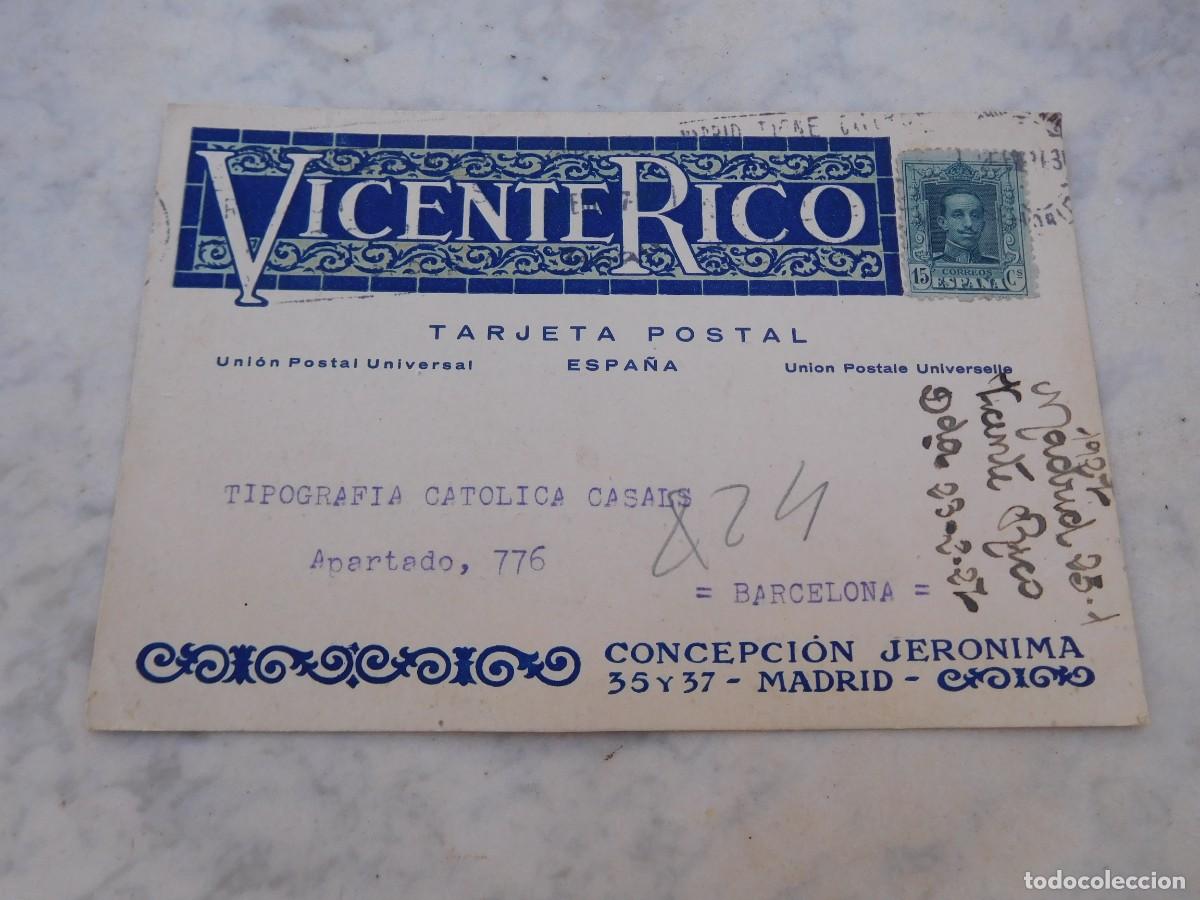 VICENTE RICO
MADRID TIENE
15 CORREOS Cs
ESPAÑA
TARJETA POSTAL
Unión Postal Universal ESPAÑA Union Postale Universelle
TIPOGRAFIA CATOLICA CASALS
Apartado, 776
= BARCELONA =
824
1927
Madrid 25-1
Vicente Rico
Dda. 23-2-27
CONCEPCIÓN JERONIMA
35 Y 37 - MADRID -
todocoleccion